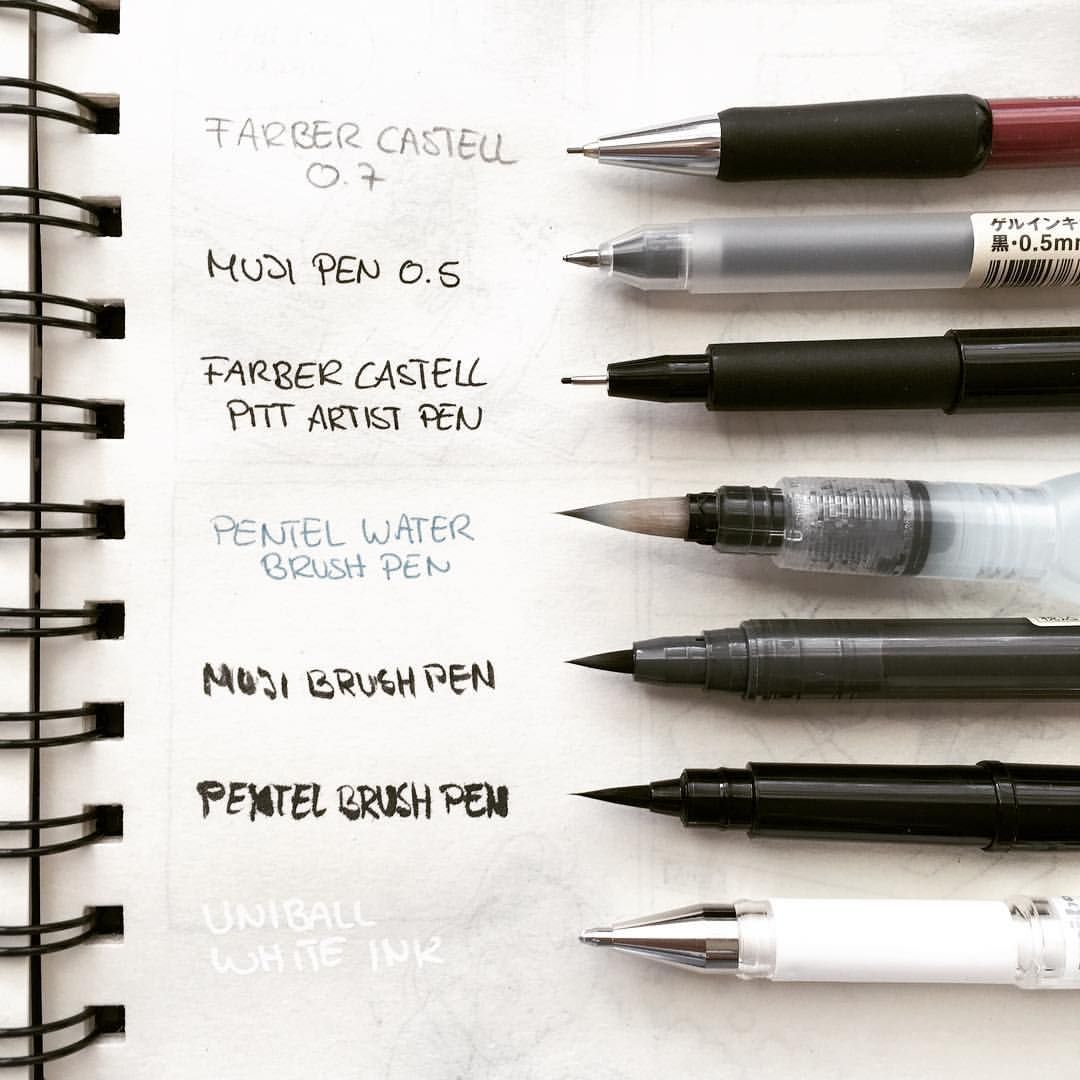 FARBER CASTELL
0.7
ゲルインキ
黒・0.5mm
MUJI PEN 0.5
FARBER CASTELL
PITT ARTIST PEN
PENTEL WATER
BRUSH PEN
MUJI BRUSH PEN
PENTEL BRUSH PEN
UNIBALL
WHITE INK